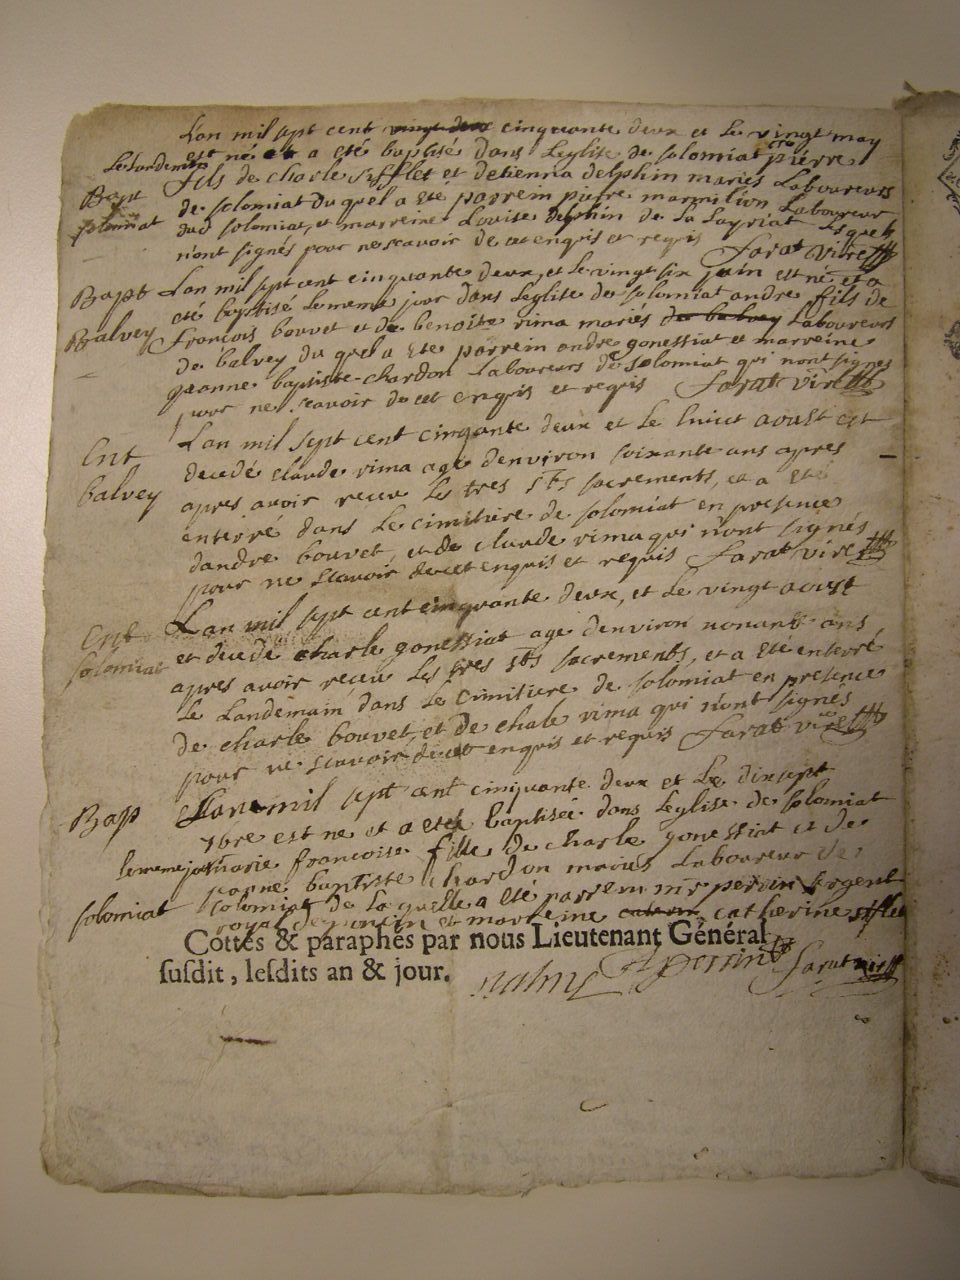 L'an mil sept cent vingt deux cinquante deux et le vingt may
Le landemin est né et a eté baptisé dans Leglise de solomiat pierre
Bapt fils de charle sifflet et detienna delphin mariés Laboureurs
solomiat de solomiat du quel a eté parrein pierre marmilion Laboureur
dud solomiat, et marreine Louise delphin de La Layriat Lsquels
n'ont signés pour ne scavoir de cet enquis et requis farat vire
Bapt Lan mil sept cent cinquante deux, et le vingt six juin est né et a
eté baptisé le meme jour dans Leglise de solomiat andre fils de
Balvey francois bouvet et de benoite rima mariés de balvey Laboureurs
de balvey du quel a ete parrein andre gonessiat et marreine
jeanne baptiste chardon Laboureurs de solomiat qui nont signés
pour ne scavoir de cet enquis et requis farat vire
Ent Lan mil sept cent cinquante deux et Le huict aoust est
decedé claude rima agé denviron soixante ans apres
balvey apres avoir receu Les tres sts sacrements, et a eté
enterré dans Le cimitiere de solomiat en presence
dandre bouvet, et de claude rima qui nont signés
pour ne scavoir de cet enquis et requis farat vire
Ent Lan mil sept cent cinquante deux, et Le vingt aoust
solomiat et decedé charle gonessiat age denviron nonante ans
apres avoir receu Les tres sts sacrements, et a eté enterré
Le Landemain dans Le cimitiere de solomiat en presence
de charle bouvet, et de chale rima qui nont signés
pour ne scavoir de cet enquis et requis farat vire
Bap Lan mil sept cent cinquante deux et Le dixsept
7bre est ne et a eteé baptiseé dans Leglise de solomiat
le meme jour marie francoise fille de charle gonessiat et de
jeanne baptiste chardon mariés Laboureur de
solomiat solomiat de la quelle a eté parrein mr perrin sergent
royal et marreine catherine sifflet
Cottés & paraphés par nous Lieutenant Général
susdit, lesdits an & jour.
perrin farat vire